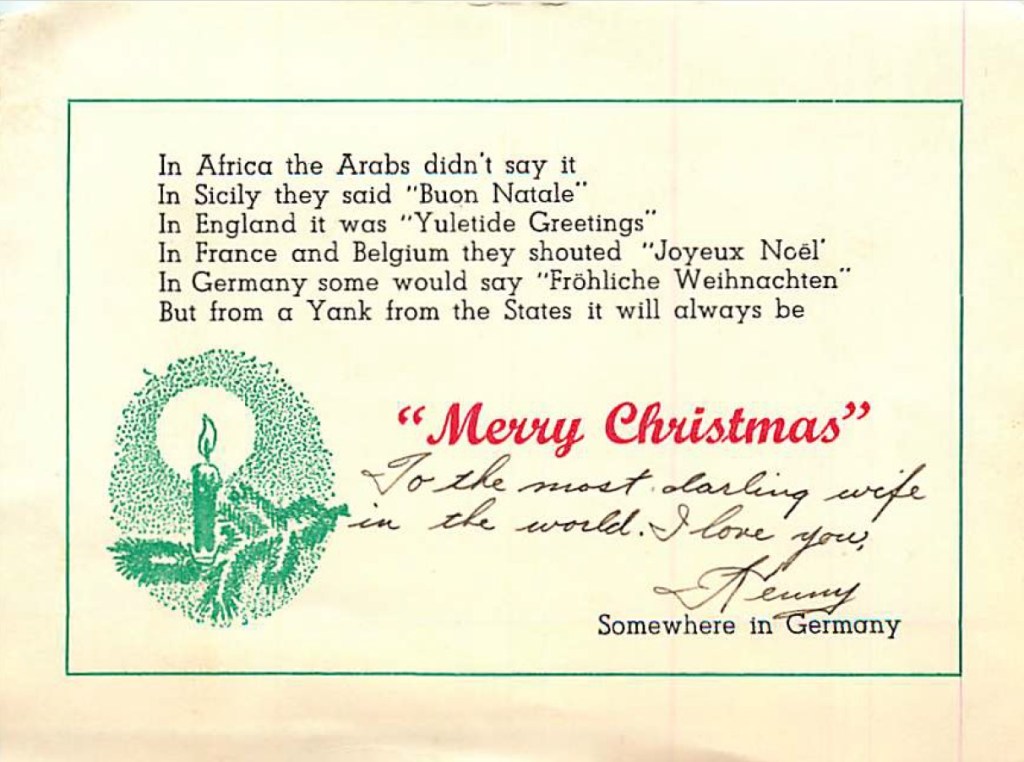 In Africa the Arabs didn't say it
In Sicily they said "Buon Natale"
In England it was "Yuletide Greetings"
In France and Belgium they shouted "Joyeux Noël'
In Germany some would say "Fröhliche Weihnachten"
But from a Yank from the States it will always be
"Merry Christmas"
To the most darling wife
in the world. I love you,
Kenny
Somewhere in Germany